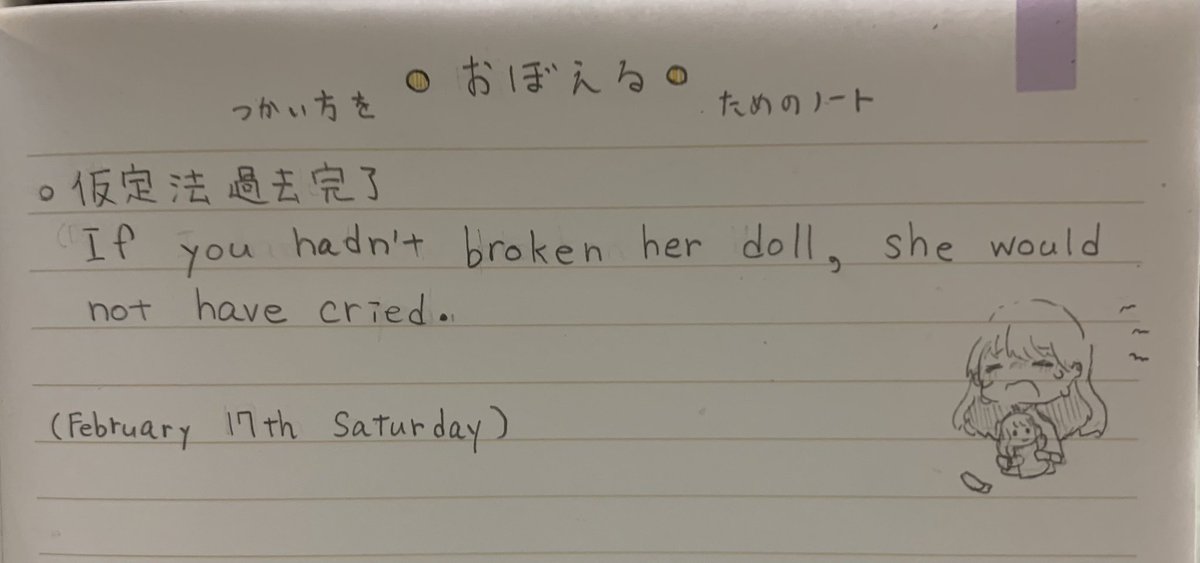 つかい方を ● おぼえる ● ためのノート
○ 仮定法過去完了
If you hadn't broken her doll, she would
not have cried.
(February 17th Saturday)